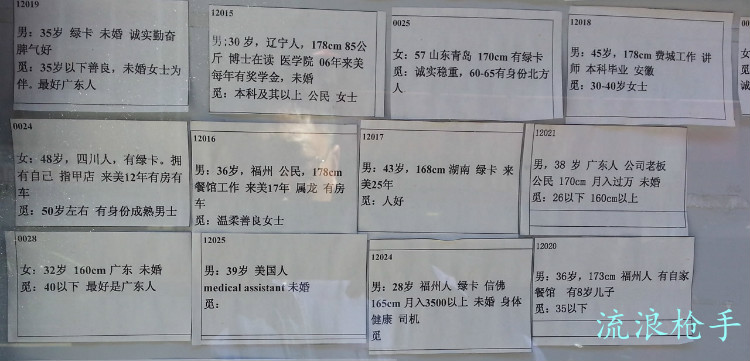 12019
男：35岁 绿卡 未婚 诚实勤奋
脾气好
觅：35岁以下善良，未婚女士为
伴。最好广东人
12015
男:30岁，辽宁人，178cm 85公
斤 博士在读 医学院 06年来美
每年有奖学金，未婚
觅：本科及其以上 公民 女士
0025
女：57 山东青岛 170cm 有绿卡
觅：诚实稳重，60-65有身份北方
人
12018
男：45岁，178cm 费城工作 讲
师 本科毕业 安徽
觅：30-40岁女士
0024
女：48岁，四川人，有绿卡。拥
有自己 指甲店 来美12年有房有
车
觅：50岁左右 有身份成熟男士
12016
男：36岁，福州 公民，178cm
餐馆工作 来美17年 属龙 有房
车
觅：温柔善良女士
12017
男：43岁，168cm 湖南 绿卡 来
美25年
觅：人好
12021
男，38 岁 广东人 公司老板
公民 170cm 月入过万 未婚
觅：26以下 160cm以上
0028
女：32岁 160cm 广东 未婚
觅：40以下 最好是广东人
12025
男：39岁 美国人
medical assistant 未婚
觅：
12024
男：28岁 福州人 绿卡 信佛
165cm 月入3500以上 未婚 身体
健康 司机
觅
12020
男：36岁，173cm 福州人 有自家
餐馆 有8岁儿子
觅：35以下
流浪枪手